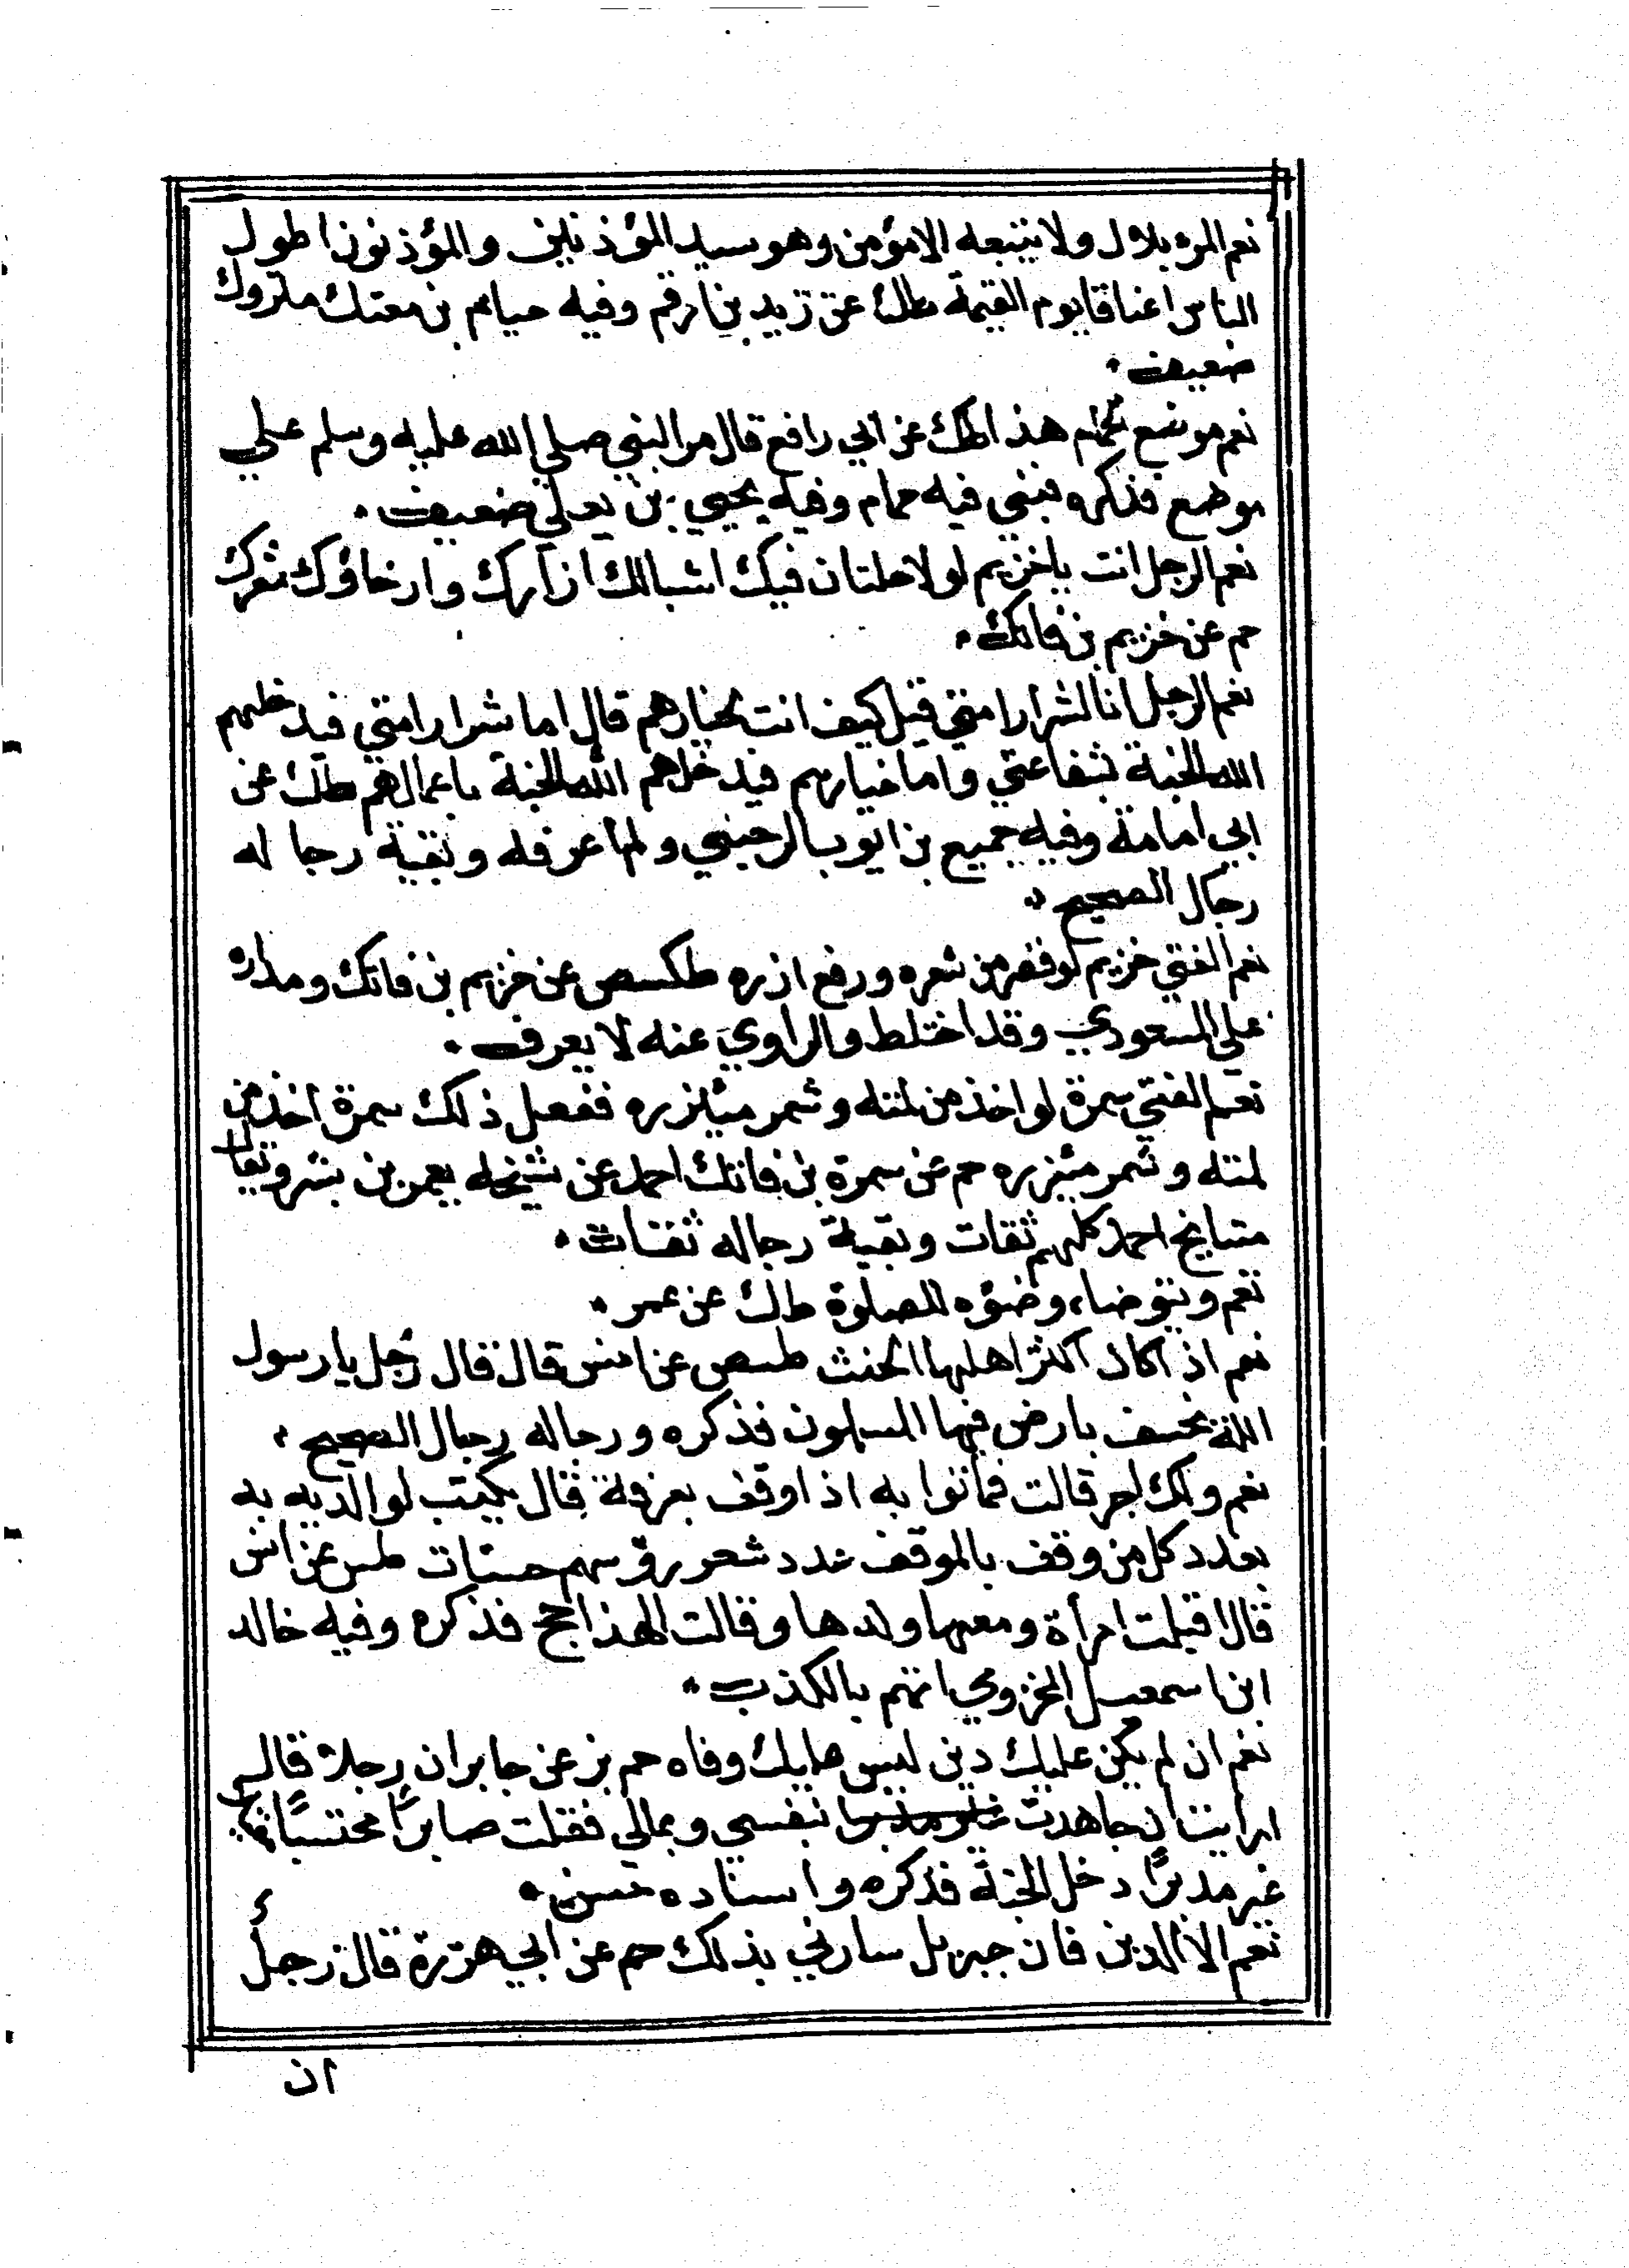 نعم المرء بلال ولا يتبعه الا مؤمن وهو سيد المؤذنين والمؤذنون اطول
الناس اعناقا يوم القيمة طك عن زيد بن ارقم وفيه حسام بن معتك متروك
ضعيف
نعم موضع الحمام هذا طك عن ابي رافع قال مر النبي صلي الله عليه وسلم علي
موضع فذكره فبني فيه حمام وفيه يحيي بن يعلي ضعيف
نعم الرجل انت يا خزيم لولا خلتان فيك اسبالك ازارك وارخاؤك شعرك
حم عن خزيم بن فاتك
نعم الرجل انا لشرار امتي قيل كيف انت لخيارهم قال اما شرار امتي فيدخلهم
الله الجنة بشفاعتي واما خيارهم فيدخلهم الله الجنة باعمالهم طك عن
ابي امامة وفيه جميع بن ايوب الرحبي ولم اعرفه وبقية رجاله
رجال الصحيح
نعم الفتي خزيم لو قصر من شعره ورفع ازره طكسص عن خزيم بن فاتك ومداره
علي المسعودي وقد اختلط والراوي عنه لا يعرف
نعم الفتي سمرة لو اخذ من لمته وشمر ميئزره ففعل ذلك سمرة اخذ من
لمته وشمر مئيزره حم عن سمرة بن فاتك احمد عن شيخه يعمر بن بشر ويقال
مشايخ احمد كلهم ثقات وبقية رجاله ثقات
نعم ويتوضاء وضؤه للصلوة طك عن عمر
نعم اذا كان اكثر اهلها الخبث طسص عن انس قال قال رجل يا رسول
الله يخسف بارض فيها المسلمون فذكره ورجاله رجال الصحيح
نعم ولك اجر قالت فما ثوابه اذا وقف بعرفة قال يكتب لوالديه به
بعدد كل من وقف بالموقف عدد شعر رؤسهم حسنات طس عن انس
قال اقبلت امرأة ومعها ولدها وقالت الهذا حج فذكره وفيه خالد
ابن اسمعيل المخزومي اتهم بالكذب
نعم ان لم يكن عليك دين ليس عليك وفاه حم بز عن جابر ان رجلا قال
ارايت ان جاهدت بنفسي وبمالي فقتلت صابرًا محتسبًا مقبلا
غير مدبرًا دخل الجنة فذكره واسناده حسن
نعم الا الدين فان جبريل سارني بذلك حم عن ابي هريرة قال رجل أ
ان